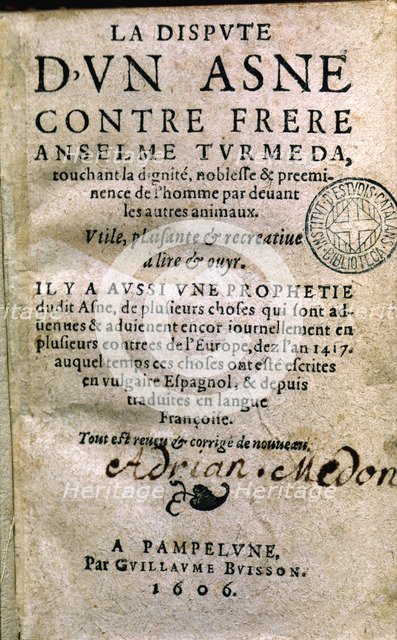 LA DISPVTE
D'VN ASNE
CONTRE FRERE
ANSELME TVRMEDA,
touchant la dignité, noblesse & preemi-
nence de l'homme par deuant
les autres animaux.
Vtile, plaisante & recreatiue
a lire & ouyr.
IL Y A AVSSI VNE PROPHETIE
dudit Asne, de plusieurs choses qui sont ad-
uenues & aduienent encor iournellement en
plusieurs contrees de l'Europe, dez l'an 1417.
auquel temps ces choses ont esté escrites
en vulgaire Espagnol, & depuis
traduites en langue
Françoise.
Tout est reueu & corrigé de nouueau.
Adrian. Medon
A PAMPELVNE,
Par GVILLAVME BVISSON.
1606.
INSTITVT D'ESTVDIS CATALANS
BIBLIOTECA
Heritage
Heritage
Heritage
Heritage